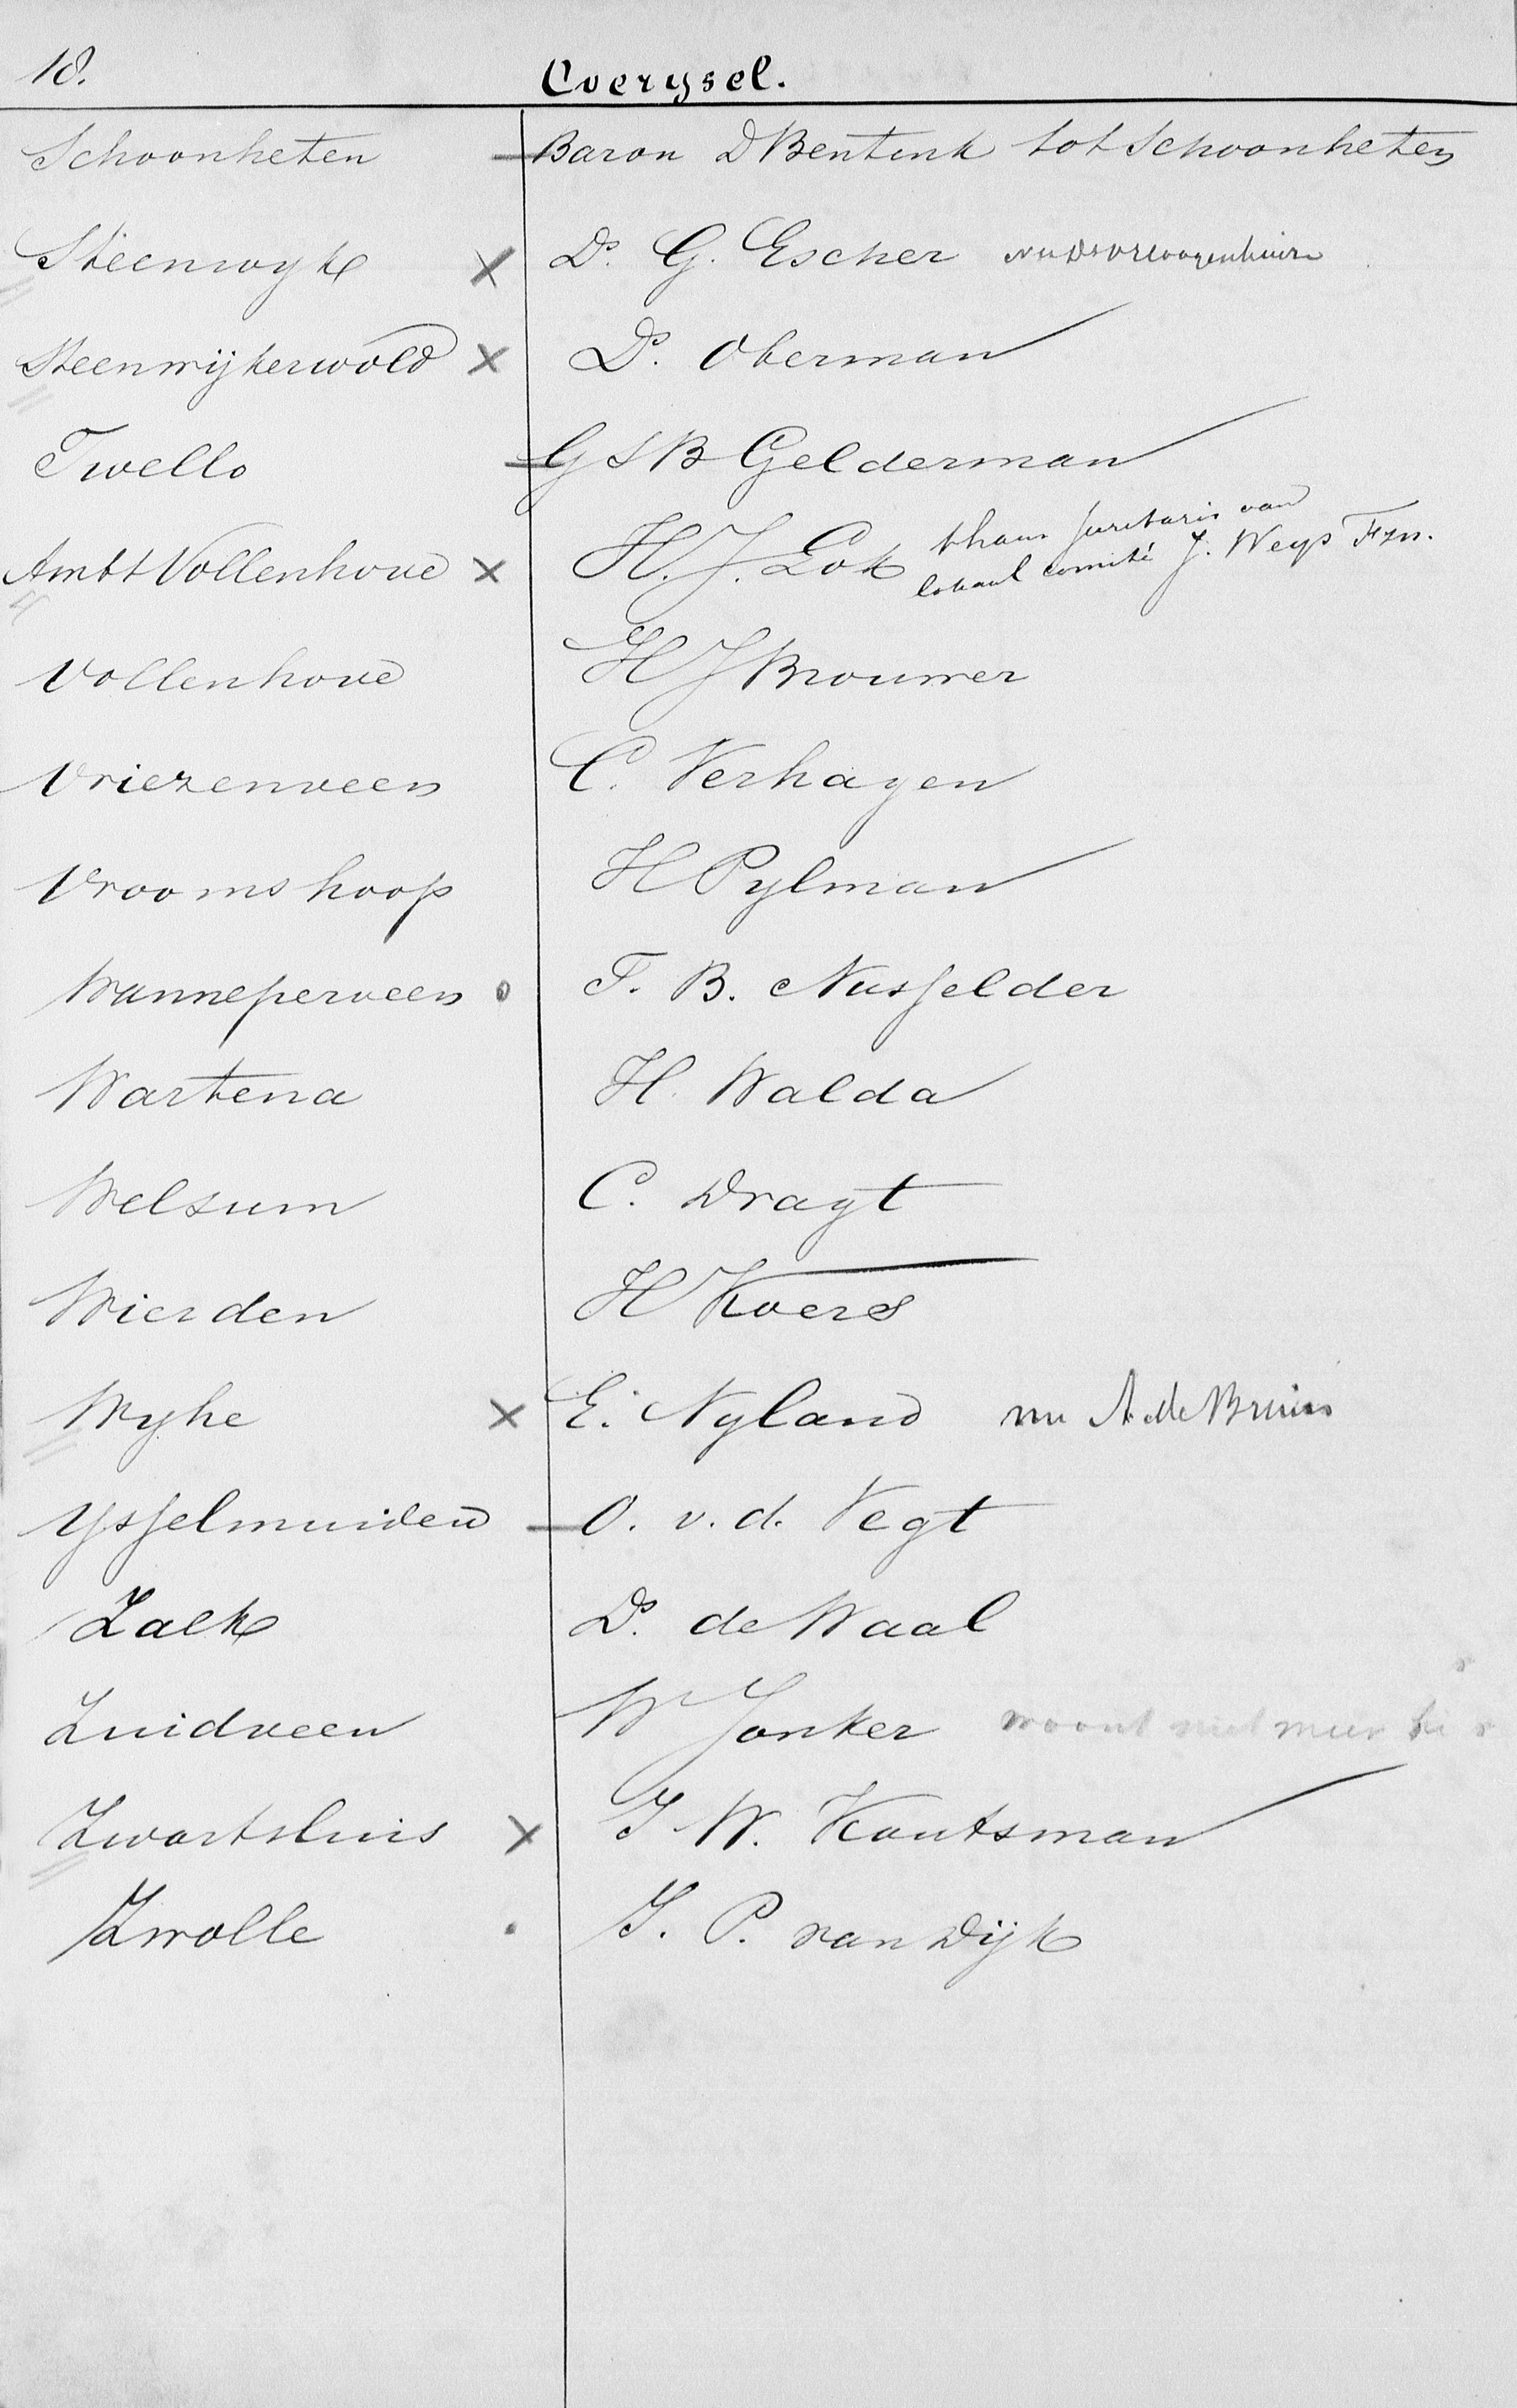 18.
Overysel.
Schoonheten Baron D Bentink tot Schoonheten
Steenwyk x Ds. G. Escher nu Ds
Steenwijkerwold x Ds. Oberman
Twello G L B Gelderman
Ambt Vollenhove x H. J. Lok thans secretaris van
lokaal comité J. Weijs Fzn.
Vollenhove H J Brouwer
Vriezenveen C. Verhagen
Vroomshoop H Pylman
Wanneperveen o F. B. Nusselder
Wartena H. Walda
Welsum C. Dragt
Wierden H Koers
Wyhe x E. Nyland nu A. de Bruin
Ysselmuiden O. v. d. Vegt
Zalk Ds. de Waal
Zuidveen W Jonker woont niet meer hier
Zwartsluis x J W. Kautsman
Zwolle . J. P. van Dijk